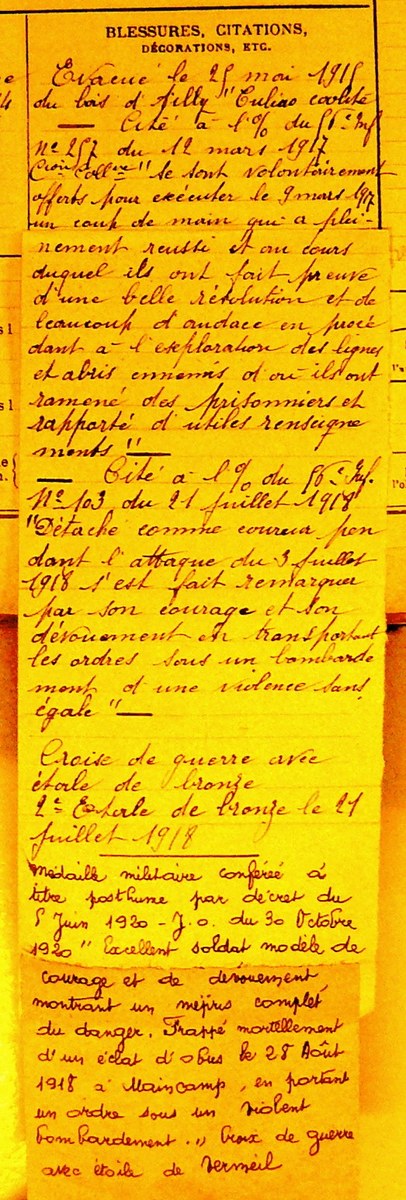 BLESSURES, CITATIONS,
DÉCORATIONS, ETC.
Evacué le 25 mai 1915
du bois d'Ailly
— Cité à l'% du 56e Inf
No 257 du 12 mars 1917
Croix Collve " Se sont volontairement
offerts pour exécuter le 9 mars 1917
un coup de main qui a plei-
nement reussi et au cours
duquel ils ont fait preuve
d'une belle résolution et de
beaucoup d'audace en procé
dant à l'exploration des lignes
et abris ennemis d'où ils ont
ramené des prisonniers et
rapporté d'utiles renseigne
ments" —
— Cité à l'% du 56e Inf.
No 103 du 21 juillet 1918
"Détaché comme coureur pen
dant l'attaque du 3 juillet
1918 s'est fait remarquer
par son courage et son
dévouement en transportant
les ordres sous un bombarde
ment d'une violence sans
égale" —
Croise de guerre avec
étoile de bronze
2e Etoile de bronze le 21
juillet 1918
Médaille militaire conférée à
titre posthume par décret du
5 Juin 1920 - J.O. du 30 Octobre
1920 " Excellent soldat modèle de
courage et de dévouement
montrant un mépris complet
du danger. Frappé mortellement
d'un éclat d'obus le 28 Août
1918 à Maincamp, en portant
un ordre sous un violent
bombardement." Croix de guerre
avec étoile de vermeil